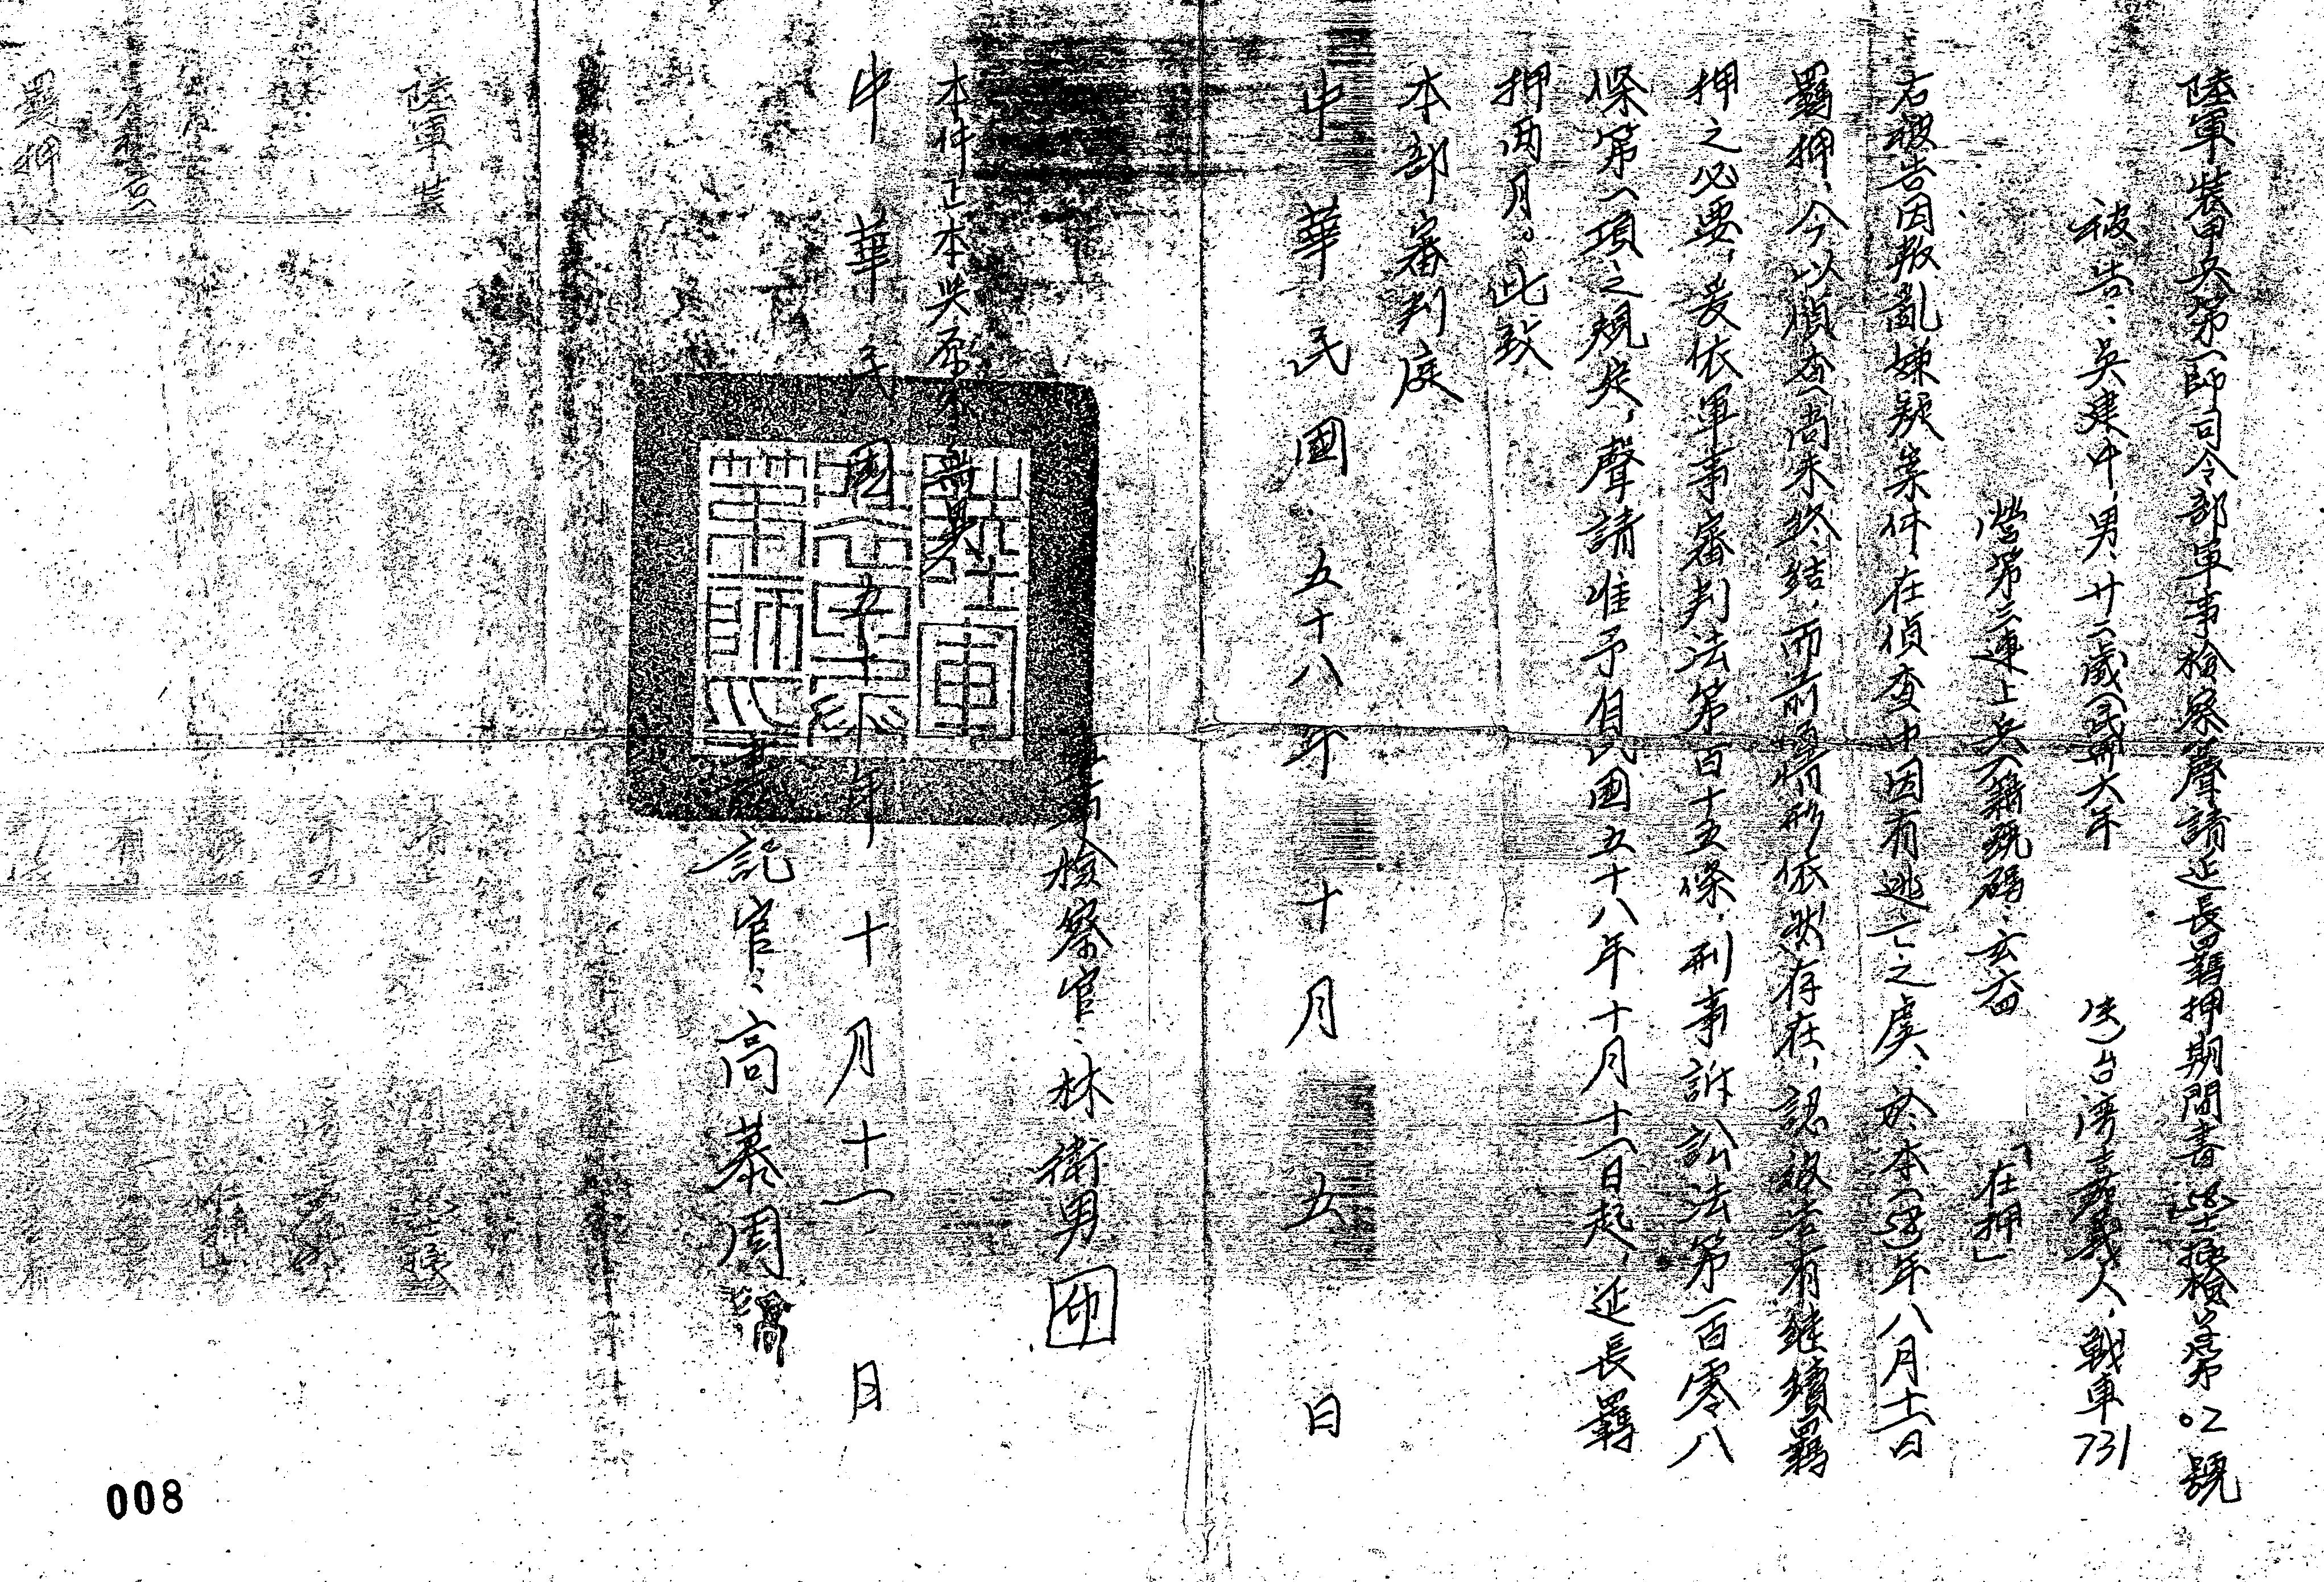 陸軍裝甲兵第一師司令部軍事檢察聲請延長羈押期間書
檢 第02號
被告:吳建中,男,廿二歲(民卅六年
生)台灣嘉義人,戰車731
營第三連上兵,兵籍號碼:玄
「在押」
右被告因叛亂嫌疑案件,在偵查中因有逃亡之虞,於本(58)年八月十一日
羈押,今以偵查尚未終結,而前項情形依然存在,認被告有繼續羈
押之必要,爰依軍事審判法第百十五條,刑事訴訟法第一百零八
條第一項之規定,聲請准予自民國五十八年十月十一日起,延長羈
押兩月。此致
本部審判庭
中華民國五十八年十月五日
檢察官:林衛男 印
本件正本與原本無異
中華民國五十 年十月十一日
書記官:高慕周
陸軍裝
羈押
008